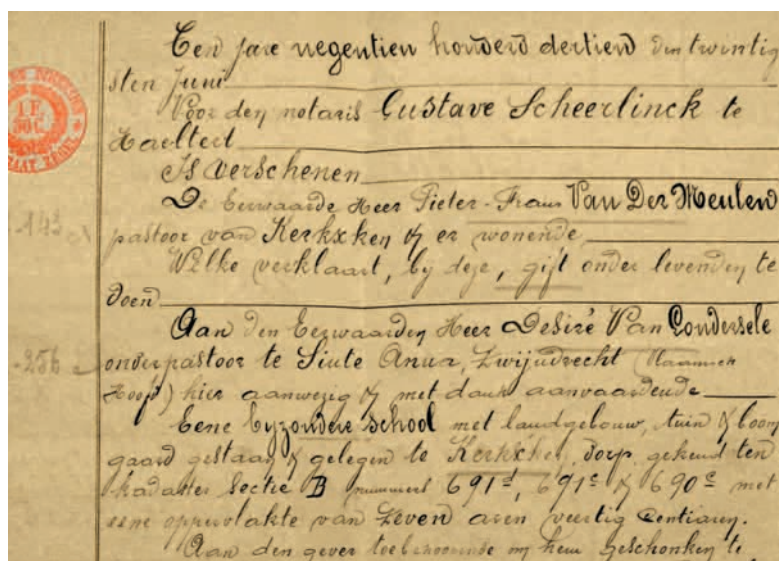 Ten jare negentien honderd dertien den twintig
sten Juni
Voor den notaris Gustave Scheerlinck te
Haeltert
Is verschenen
De Eerwaarde Heer Pieter-Frans Van Der Meulen
pastoor van Kerkxken & er wonende
Welke verklaart, bij deze, gift onder levenden te
doen
Aan den Eerwaarden Heer Desiré Van Gondersele
onderpastoor te Sinte Anna, Zwijndrecht (Vlaamsch
Hoofd) hier aanwezig & met dank aanvaardende
Eene byzondere school met landgebouw, tuin & boom
gaard gestaan & gelegen te Kerkxken dorp gekend ten
kadaster sectie B nummers 691d, 691c & 690c met
eene oppervlakte van zeven aren veertig centiaren.
Aan den gever toebehoorende om hem geschonken te